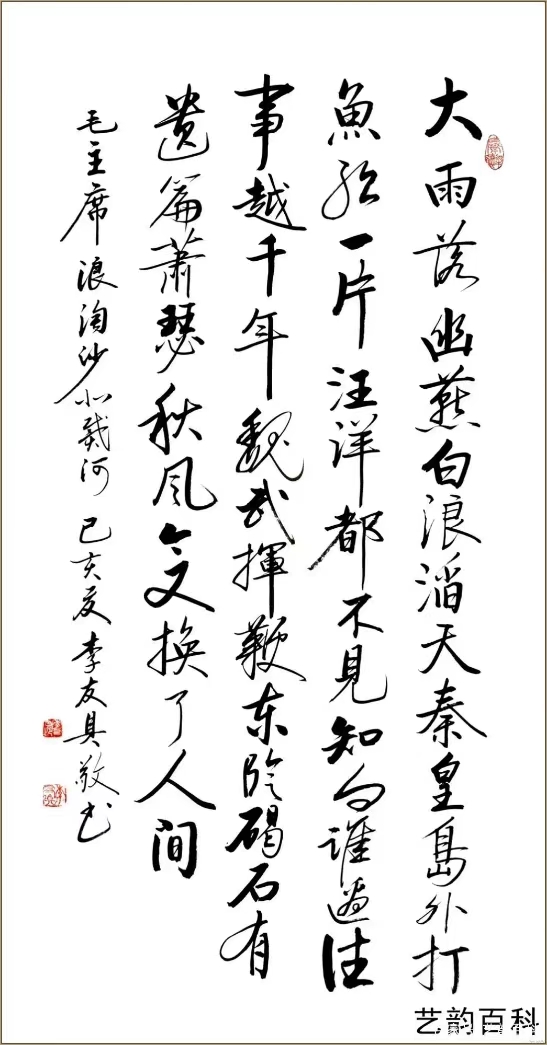 大雨落幽燕白浪滔天秦皇島外打
魚船一片汪洋都不見知向誰邊往
事越千年魏武揮鞭东临碣石有
遗篇蕭瑟秋风今又换了人间
毛主席浪淘沙北戴河 己亥夏李友具敬书
艺韵百科